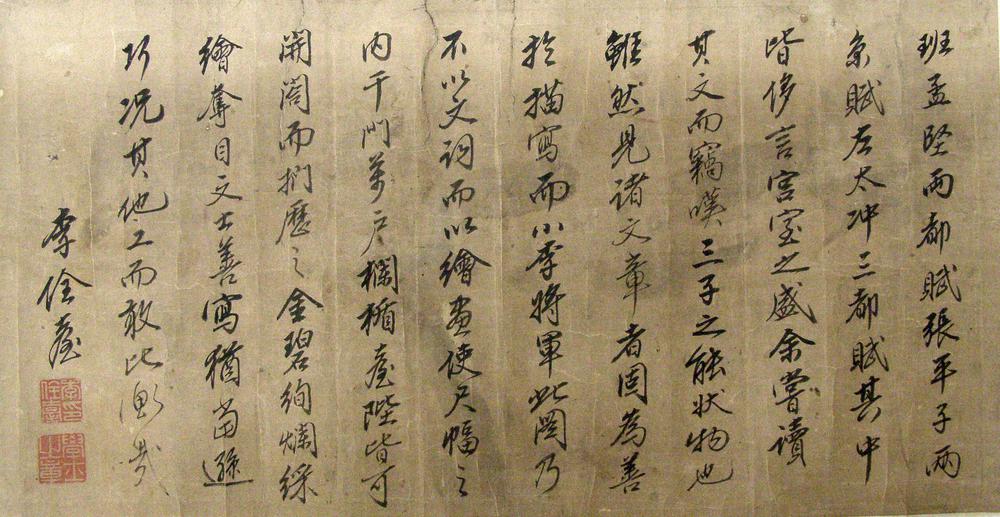 班孟堅両都賦張平子両
京賦左太冲三都賦其中
皆侈言宫室之盛余嘗讀
其文而竊嘆三子之能状物也
雖然見諸文章者固為善
於描寫而小李将軍此图乃
不以文詞而以繪畫使尺幅之
内千門萬户欄楯臺陛皆可
開闔而捫歷之金碧絢爛綵
繪奪目文士善寫猶當遜
巧况其他工而敢比衡哉
李佺臺